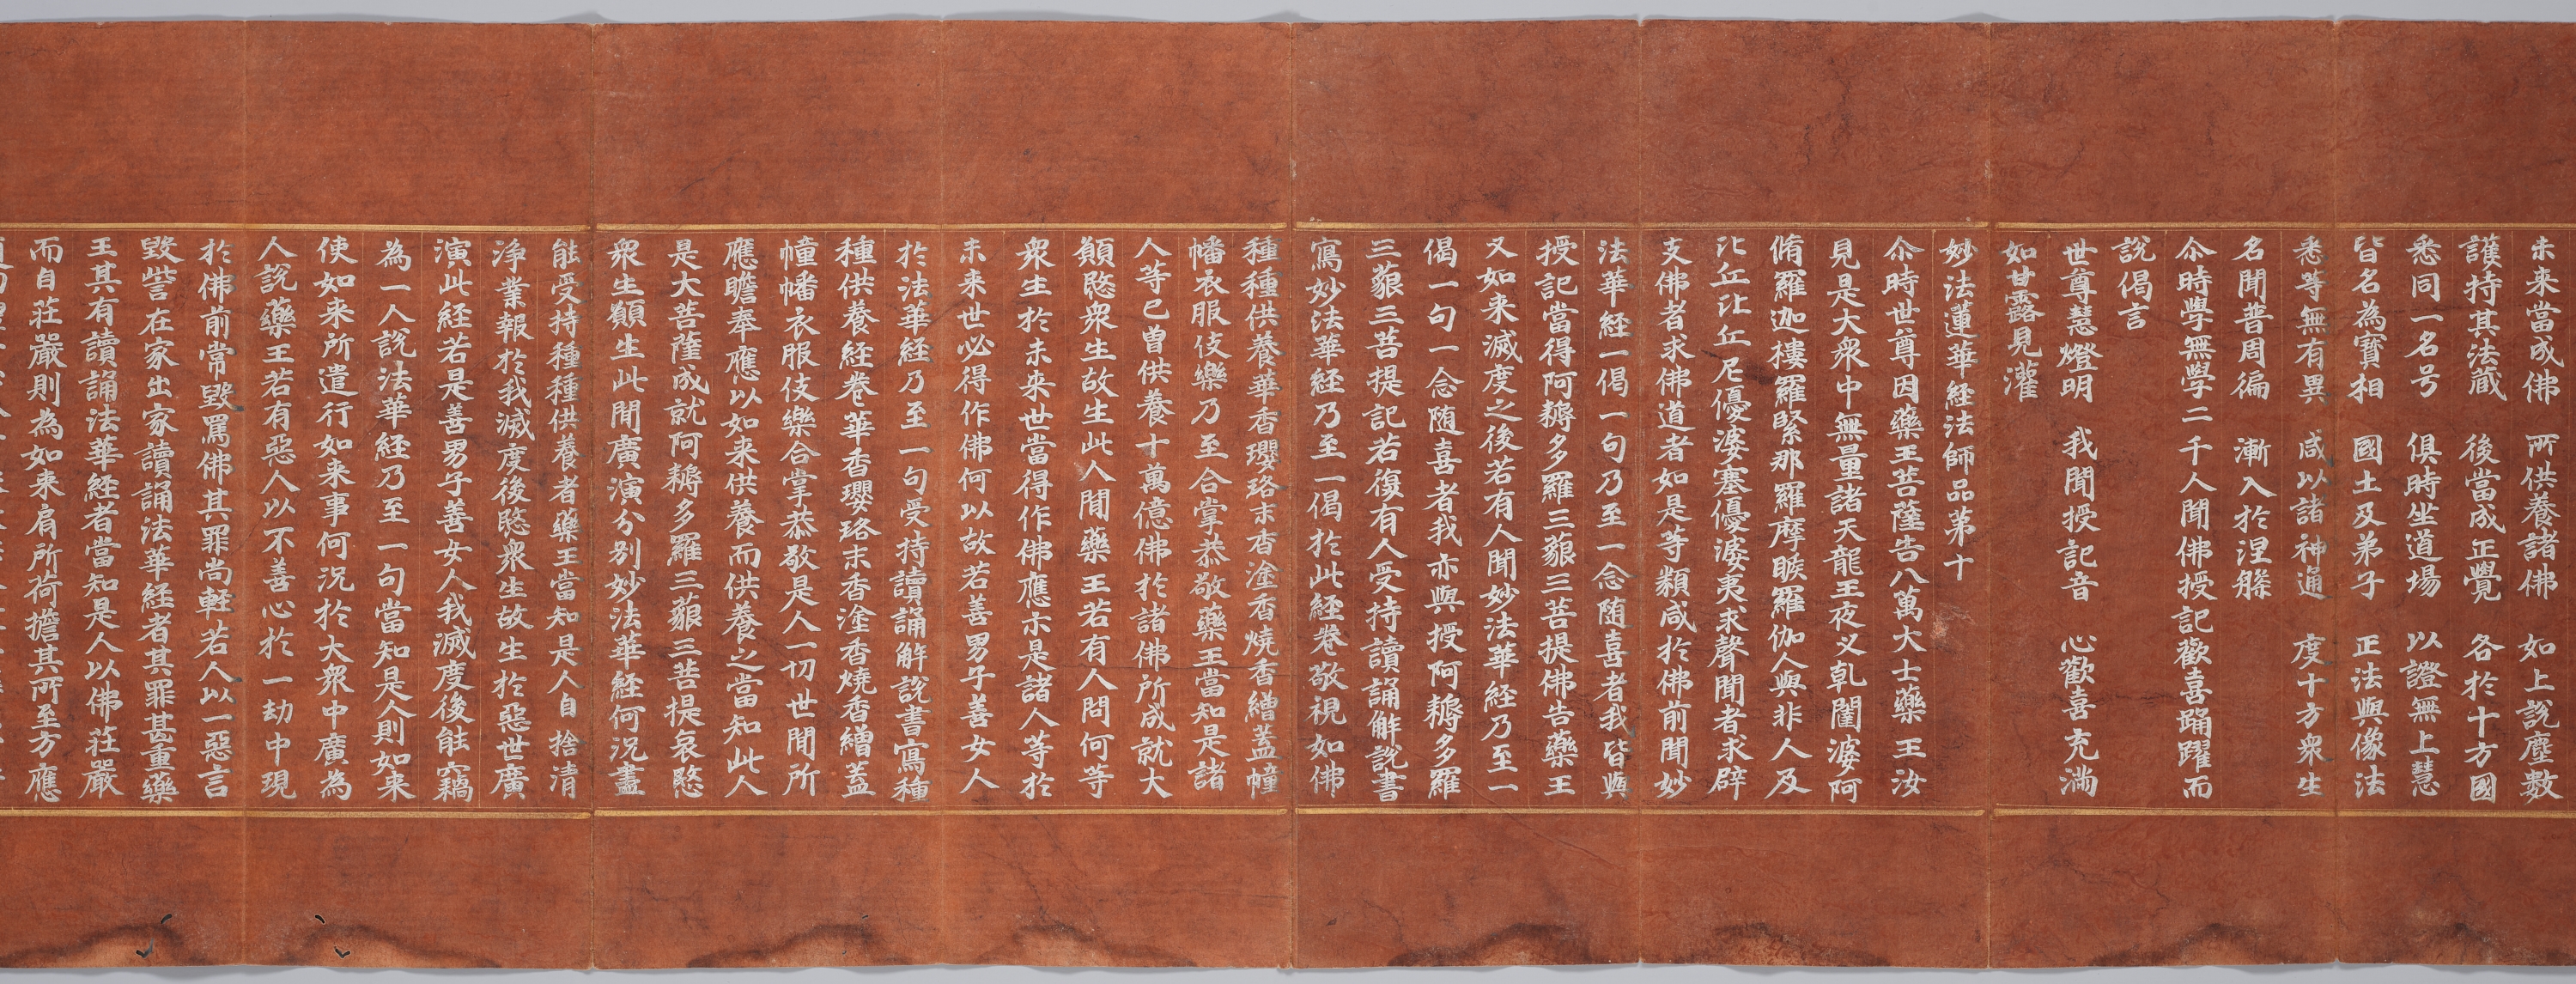 未来當成佛　所供養諸佛　如上說塵數
護持其法藏　後當成正覺　各於十方國
悉同一名号　俱時坐道場　以證無上慧
皆名為寶相　國土及弟子　正法與像法
悉等無有異　咸以諸神通　度十方衆生
名聞普周徧　漸入於涅槃
尒時學無學二千人聞佛授記歡喜踊躍而
說偈言
世尊慧燈明　我聞授記音　心歡喜充滿
如甘露見灌
妙法蓮華經法師品苐十
尒時世尊因藥王菩薩告八萬大士藥王汝
見是大衆中無量諸天龍王夜叉乹闥婆阿
脩羅迦樓羅緊那羅摩睺羅伽人與非人及
比丘比丘尼優婆塞優婆夷求聲聞者求辟
支佛者求佛道者如是等類咸於佛前聞妙
法華経一偈一句乃至一念随喜者我皆與
授記當得阿耨多羅三藐三菩提佛告藥王
又如来滅度之後若有人聞妙法華経乃至一
偈一句一念随喜者我亦與授阿耨多羅
三藐三菩提記若復有人受持讀誦解說書
寫妙法華経乃至一偈於此経卷敬視如佛
種種供養華香瓔珞末香塗香燒香繒蓋幢
幡衣服伎樂乃至合掌恭敬藥王當知是諸
人等已曾供養十萬億佛於諸佛所成就大
願愍衆生故生此人間藥王若有人問何等
衆生於未来世當得作佛應示是諸人等於
未来世必得作佛何以故若善男子善女人
於法華経乃至一句受持讀誦解說書寫種
種供養経卷華香瓔珞末香塗香燒香繒蓋
幢幡衣服伎樂合掌恭敬是人一切世間所
應瞻奉應以如来供養而供養之當知此人
是大菩薩成就阿耨多羅三藐三菩提哀愍
衆生願生此間廣演分別妙法華経何況盡
能受持種種供養者藥王當知是人自捨清
淨業報於我滅度後愍衆生故生於惡世廣
演此経若是善男子善女人我滅度後能竊
為一人說法華経乃至一句當知是人則如来
使如来所遣行如来事何況於大衆中廣為
人說藥王若有惡人以不善心於一劫中現
於佛前常毀罵佛其罪尚輕若人以一惡言
毀呰在家出家讀誦法華経者其罪甚重藥
王其有讀誦法華経者當知是人以佛莊嚴
而自莊嚴則為如来肩所荷擔其所至方應